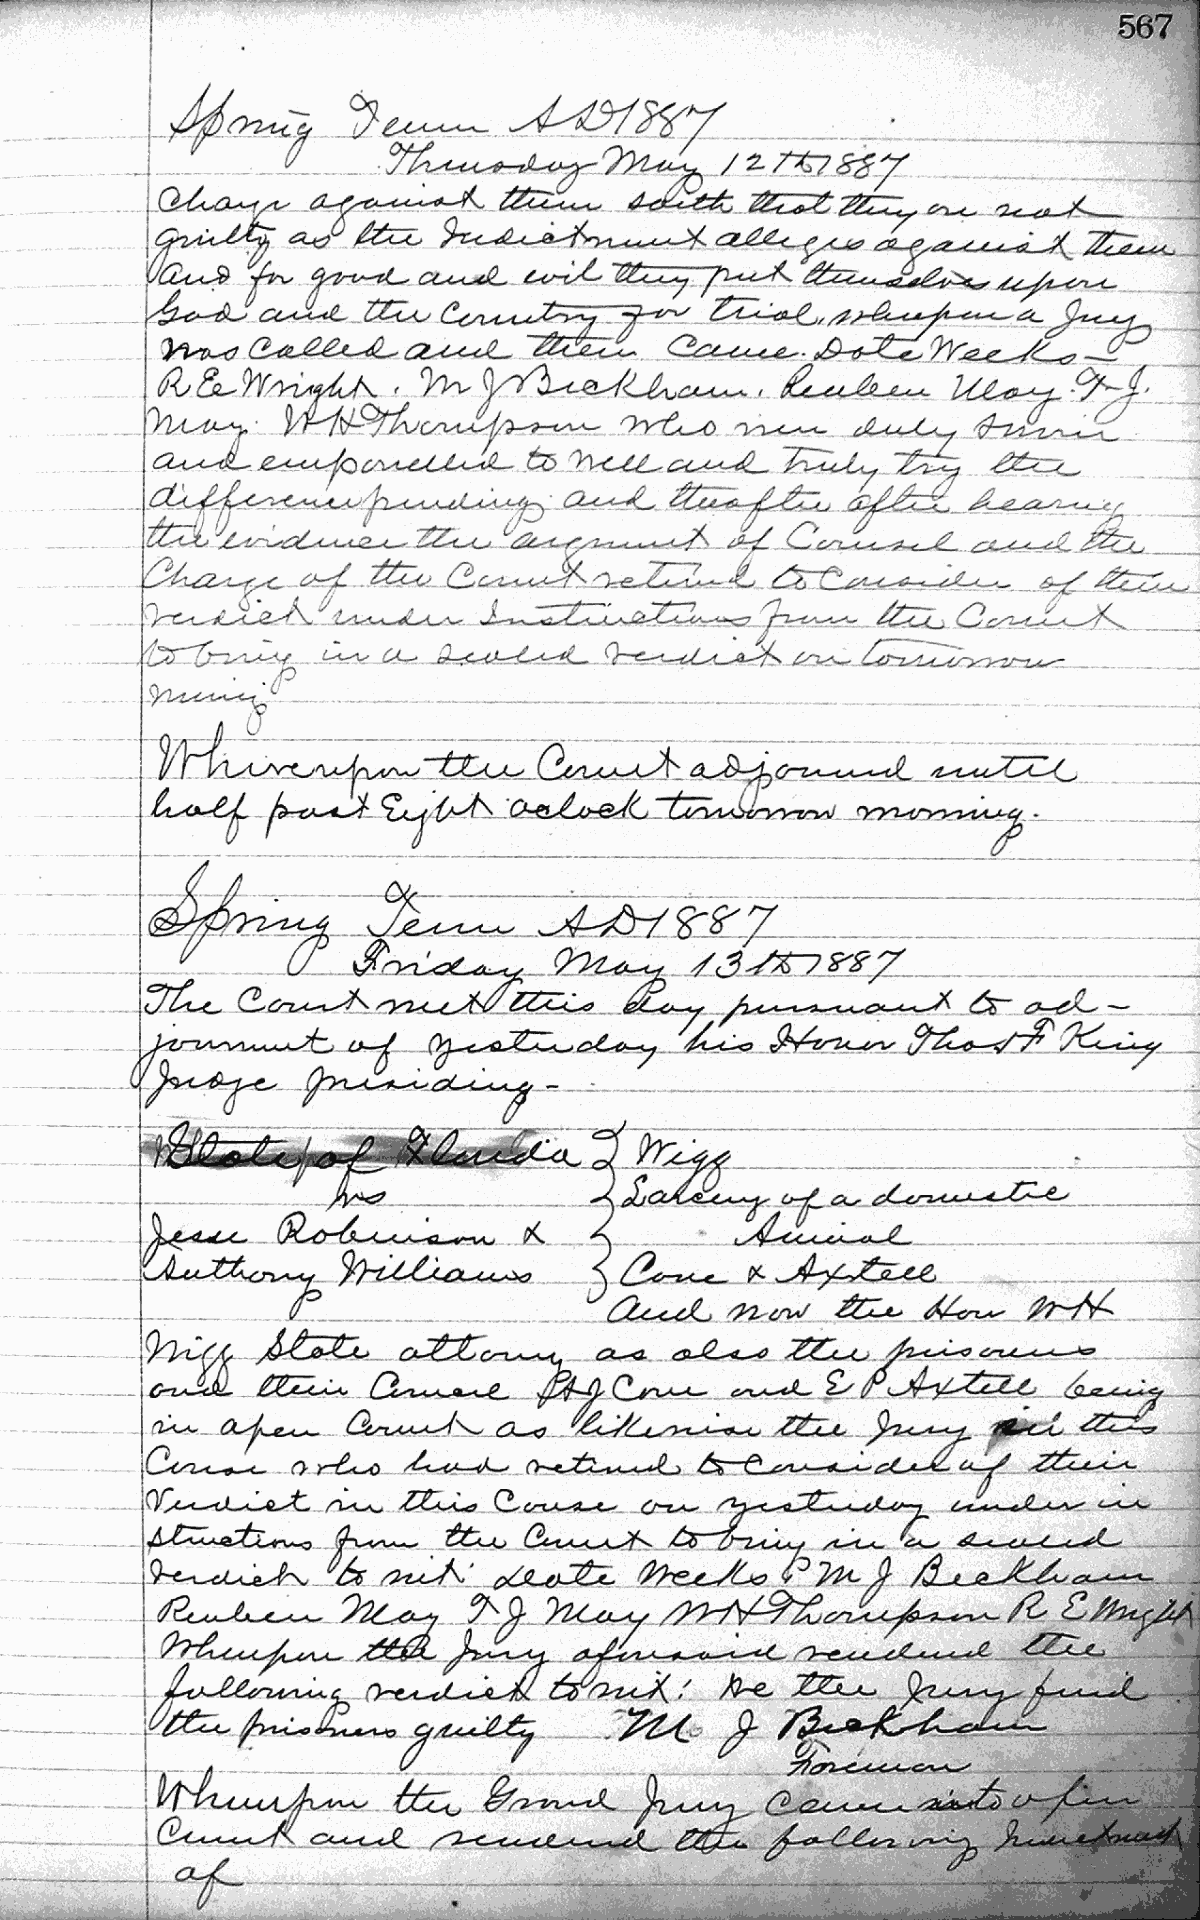 567
Spring Term AD 1887
Thursday May 12th 1887
Charge against them saith that they are not
guilty as the Indictment alleges against them
and for good and evil they put themselves upon
God and the Country for trial, whereupon a Jury
was called and them came. Date Weeks—
R E Wright. M J Beckham. Reuben May. T. J.
May. W H Thompson who were duly sworn
and empanelled to well and truly try the
difference pending and theafter after hearing
the evidence the argument of Counsel and the
Charge of the Court retired to consider of their
verdict under Instructions from the Court
to bring in a sealed verdict on tomorrow
mning
Whereupon the Court adjourned until
half past Eight oclock tomorrow morning.
Spring Term AD 1887
Friday May 13th 1887
The Court met this day pursuant to ad-
journment of yesterday his Honor Thos F King
Judge presiding-
State of Florida } Wigg
vs } Larceny of a domestic
Jesse Robinson & } Animal
Anthony Williams } Cone & Axtell
And now the Hon W H
Wigg State attorny as also the prisoners
and their Counsel J Cone and E P Axtell being
in open Court as likewise the Jury in this
Cause who had retired to Consider of their
Verdict in this Cause on yesterday under in
structions from the Court to bring in a sealed
verdict to wit: Date Weeks M J Beckham
Reuben May T J May W H Thompson R E Wright
Whereupon the Jury aforesaid rendered the
following verdict to wit: We the Jury find
the prisoners guilty M J Beckham
Foreman
Whereupon the Grand Jury came into open
Court and rendered the following Indictment
of